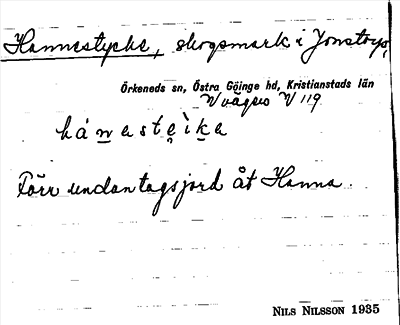 Hannestycke, skogsmark i Jonstorp,
Örkeneds sn, Östra Göinge hd, Kristianstads län
V 119
Förr undantagsjord åt Hanna.
NILS NILSSON 1935